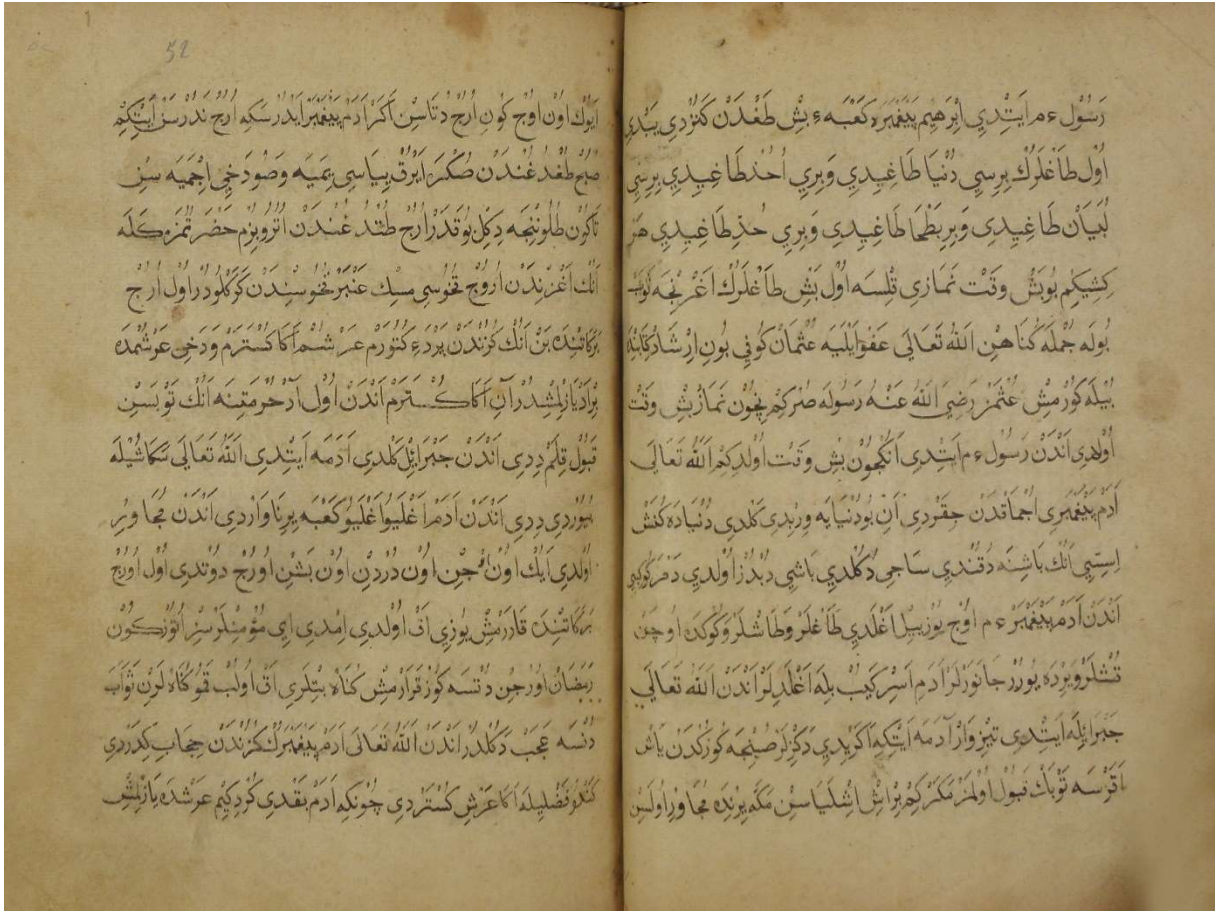 رَسُوْل ءم اَيَتْدِي اِبْرَهِيم پَيْغَمْبَر كَعْبَه ءِ بِشْ طَغْدَنْ كَتُرْدِي يَپْدِي
اُوْل طَاغْلَرُكْ بِرِسِي دُنْيَا طَاغِيدِي وَبِرِي اُحُدْ طَاغِيدِي بِرِسِي
لُبْيَانْ طَاغِيدِى وَبِرِ بَطْحَا طَاغِيدِى وَبِرِي طَاغِيدِي هَرْ
كِشِيكِمْ بُو بَشْ وَقْت نَمَازِى قِلِسَه اُوْل بَشْ طَاغْلَرُكْ اَغْرِنْجَه
بُولَه جُمْلَه كُنَاهِنْ اَللّٰهُ تَعَالَى عَفْو اَيْلَيَه عُثْمَانْ كُوفِي بُونِ اِرْشَادْ كِتَابِنْدَه
بِيْلَه كُورْمِشْ عُثْمَرْ رَضِيَ اللّٰهُ عَنْهُ رَسُولَه صُرْدِكِمْ نِچُونْ نَمَازْ بَشْ وَقْت
اُولْدِى اَنْدَنْ رَسُوْل ءم اَيَتْدِى اَنُكْچُونْ بَشْ وَقْت اُولْدِكِمْ اَللّٰهُ تَعَالَى
آدَمْ پَيْغَمْبَرِى اُچْمَاقْدَنْ چِقَرْدِى اَنِ بُو دُنْيَايَه وِرِبْدِى كَلْدِى دُنْيَادَه كُنَشْ
اِسِّيسِي اَنُكْ بَاشِنَه دُقُنْدِي سَاچِي دُكُلْدِي بَاشِي اُولْدِي
اَنْدَنْ آدَمْ پَيْغَمْبَر ءم اُوچْ يُوزْ يِيلْ اَغْلَدِي طَاغْلَرْ وَطَاشْلَرْ وَكُوكْدَه اُوچَنْ
قُشْلَرْ وَيَرْدَه يُورُرْ جَانَوَرْلَرْ آدَمِ اَسِرْكَيِبْ بِلَه اَغْلَدِلَرْ اَنْدَنْ اَللّٰهُ تَعَالَي
جَبْرَائِلَه اَيَتْدِى تِيزْ وَارْ آدَمَه اَيِتْكِه اَكَرْ يِدِي دَكِزْلَرْ صِنْجَه كُوزُكْدَنْ يَاشْ
اَقَرْسَه تَوْبَكْ قَبُولْ اُولْمَزْ مَكَرْ كِمْ بِرْ اِيشْ اِشْلَيَاسِنْ مَكَّه يِرِنْدَه مُجَاوِرْ اُولَسِنْ
52
آيُوكْ اُونْ اُوچْ كُونِ اُرُجْ دُتَاسِنْ اَكَرْ آدَمْ پَيْغَمْبَرْ اَيْدُرْسَكِه اُرُجْ نَدُرْ سَنْ اَيِتْكِمْ
صُبْح طُغْدُغُنْدَنْ صُكْرَه اَيْرُقْ يِيَاسِي يِمَيَه وَصُو دَخِي اِچْمَيَه سِزْ
تَا كُونْ طُلُونِنْجَه دِكَلْ بُو قَدَرْ اُرُجْ طُتْدُغُنْدَنْ اُتْرُو بِزُمْ حَضْرَتُمْزَه كَلَه
اَنُكْ اَغْزِنْدَنْ اُرُوجْ قُخُوسِي مِسْك عَنْبَرْ قُخُوسِنْدَنْ كَرَكْلُودُرْ اُوْل اُرُجْ
بَرَكَاتِنْدَه بَنْ اَنُكْ كُزُنْدَنْ پَرْدَه ءِ كُتُورَمْ عَرْشُمِ اَكَا كُسْتَرَمْ وَدَخِى عَرْشُمْدَه
بِرْ آدْ يَازِلْمِشْدُرْ آنِ اَكَا كُسْتَرَمْ اَنْدَنْ اُول آدْ حُرْمَتِنَه اَنُكْ تَوْبَسِنْ
قَبُولْ قِلَمْ دِدِى اَنْدَنْ جَبْرَائِلْ كَلْدِى آدَمَه اَيَتْدِى اَللّٰهُ تَعَالَى سَكَا شُيْلَه
بُيُورْدِى دِدِى اَنْدَنْ آدَمْ اَغْلَيُو اَغْلَيُو كَعْبَه يِرِنَا وَارْدِى اَنْدَنْ مُجَاوِرْ
اُولْدِى آيُكْ اُونْ اُوچُنْ اُونْ دُرْدُنْ اُونْ بَشِنْ اُورُجْ دُوتْدِى اُوْل اُورُجْ
بَرَكَاتِنْدَه قَارَرْمِشْ يُوزِى اَقْ اُولْدِى اِمْدِى اِي مُؤْمِنْلَرْ سِزْ اُتُوزْ كُونْ
رَمَضَانْ اُورُجِنْ دُتْسَه كُوزْ قَرَارْمِشْ كُنَاهْ بِتِلَرِى اَقْ اُولُبْ قَمُو كُنَاهْلَرِنْ ثَوَابْ
دُنْسَه عَجَبْ دَكُلْدُرْ اَنْدَنْ اَللّٰهُ تَعَالَى آدَمْ پَيْغَمْبَرُكْ كُزُنْدَنْ حِجَابْ كِدَرْدِى
كَنْدُو فَضْلِيلَه اَكَا عَرْشِ كُسْتَرْدِى چُونْكِه آدَمْ بَقْدِى كُرْدِكِيمْ عَرْشْدَه يَازِلْمِشْ